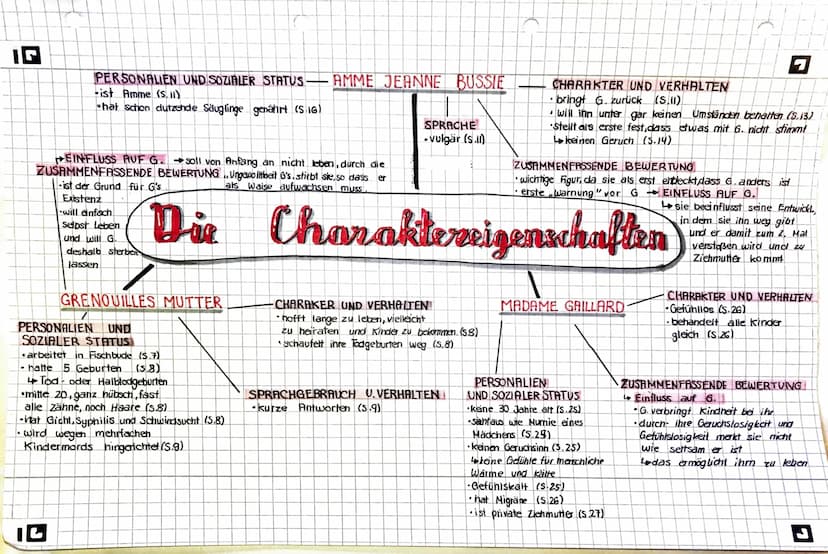 PERSONALIEN UND SOZIALER STATUS — AMME JEANNE BUSSIE
• ist Amme (S.11)
• hat schon dutzende Säuglinge genährt (S.16)
CHARAKTER UND VERHALTEN
• bringt G. zurück (S.11)
• will ihn unter gar keinen Umständen behalten (S.13)
• stellt als erste fest, dass etwas mit G. nicht stimmt
↳ keinen Geruch (S.14)
SPRACHE
• vulgär (S.11)
ZUSAMMENFASSENDE BEWERTUNG
• wichtige Figur, da sie als erst entdeckt, dass G. anders ist
• erste „Warnung" vor G → EINFLUSS AUF G.
↳ sie beeinflusst seine Entwickl.
in dem sie ihn weg gibt
und er damit zum 2. Mal
verstoßen wird und zu
Ziehmutter kommt
EINFLUSS AUF G. → soll von Anfang an nicht leben, durch die
„Ungewolltheit G's, stirbt sie, so dass er
als Waise aufwachsen muss
ZUSAMMENFASSENDE BEWERTUNG
• ist der Grund für G's
Existenz
• will einfach
selbst leben
und will G.
deshalb sterben
lassen
Die Charaktereigenschaften
GRENOUILLES MUTTER
CHARAKER UND VERHALTEN
• hofft lange zu leben, vielleicht
zu heiraten und Kinder zu bekommen (S.8)
• schaufelt ihre Todgeburten weg (S.8)
PERSONALIEN UND
SOZIALER STATUS
• arbeitet in Fischbude (S.7)
• hatte 5 Geburten (S.8)
↳ Tod- oder Halbtodgeburten
• mitte 20, ganz hübsch, fast
alle Zähne, noch Haare (S.8)
• Hat Gicht, Syphilis und Schwindsucht (S.8)
• wird wegen mehrfachen
Kindermords hingerichtet (S.9)
SPRACHGEBRAUCH U. VERHALTEN
• kurze Antworten (S.9)
MADAME GAILLARD
CHARAKTER UND VERHALTEN
• Gefühllos (S.26)
• behandelt alle Kinder
gleich (S.26)
PERSONALIEN
UND SOZIALER STATUS
• keine 30 Jahre alt (S.25)
wie Mumie eines
Mädchens (S.25)
• keinen Geruchsinn (S.25)
↳ keine Gefühle für menschliche
Wärme und Kälte
• Gefühlskalt (S.25)
• hat Migräne (S.26)
• ist private Ziehmutter (S.27)
ZUSAMMENFASSENDE BEWERTUNG
↳ Einfluss auf G.
• G. verbringt Kindheit bei ihr
• durch ihre Geruchslosigkeit und
Gefühllosigkeit merkt sie nicht
wie seltsam er ist
↳ das ermöglicht ihm zu leben